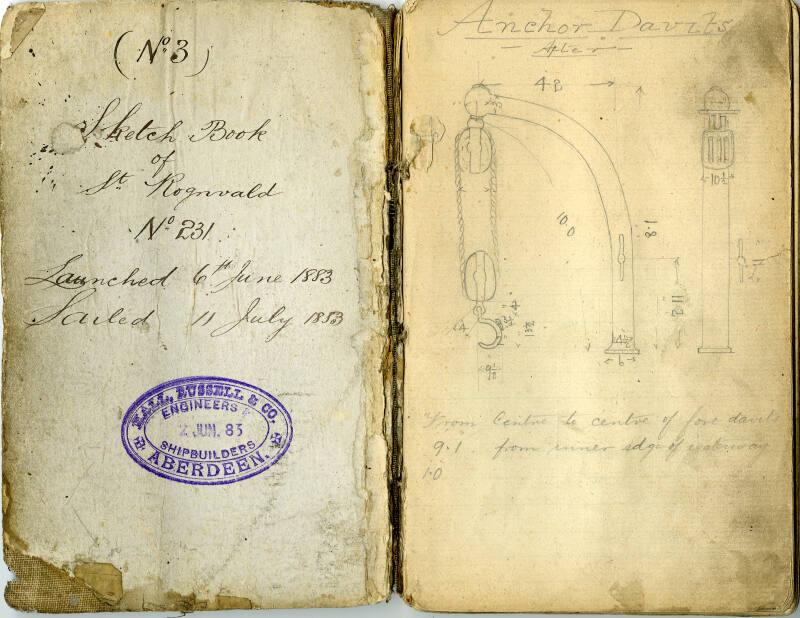 (No. 3)
Sketch Book
of
St. Rognvald
No. 231
Launched 6th June 1883
Sailed 11 July 1883
HALL, RUSSELL & CO.
ENGINEERS &
2 JUN. 83
SHIPBUILDERS
ABERDEEN.
Anchor Davits
10½
10.0
8.1
From Centre to centre of fore davits
9.1 from inner edge of waterway
1.0